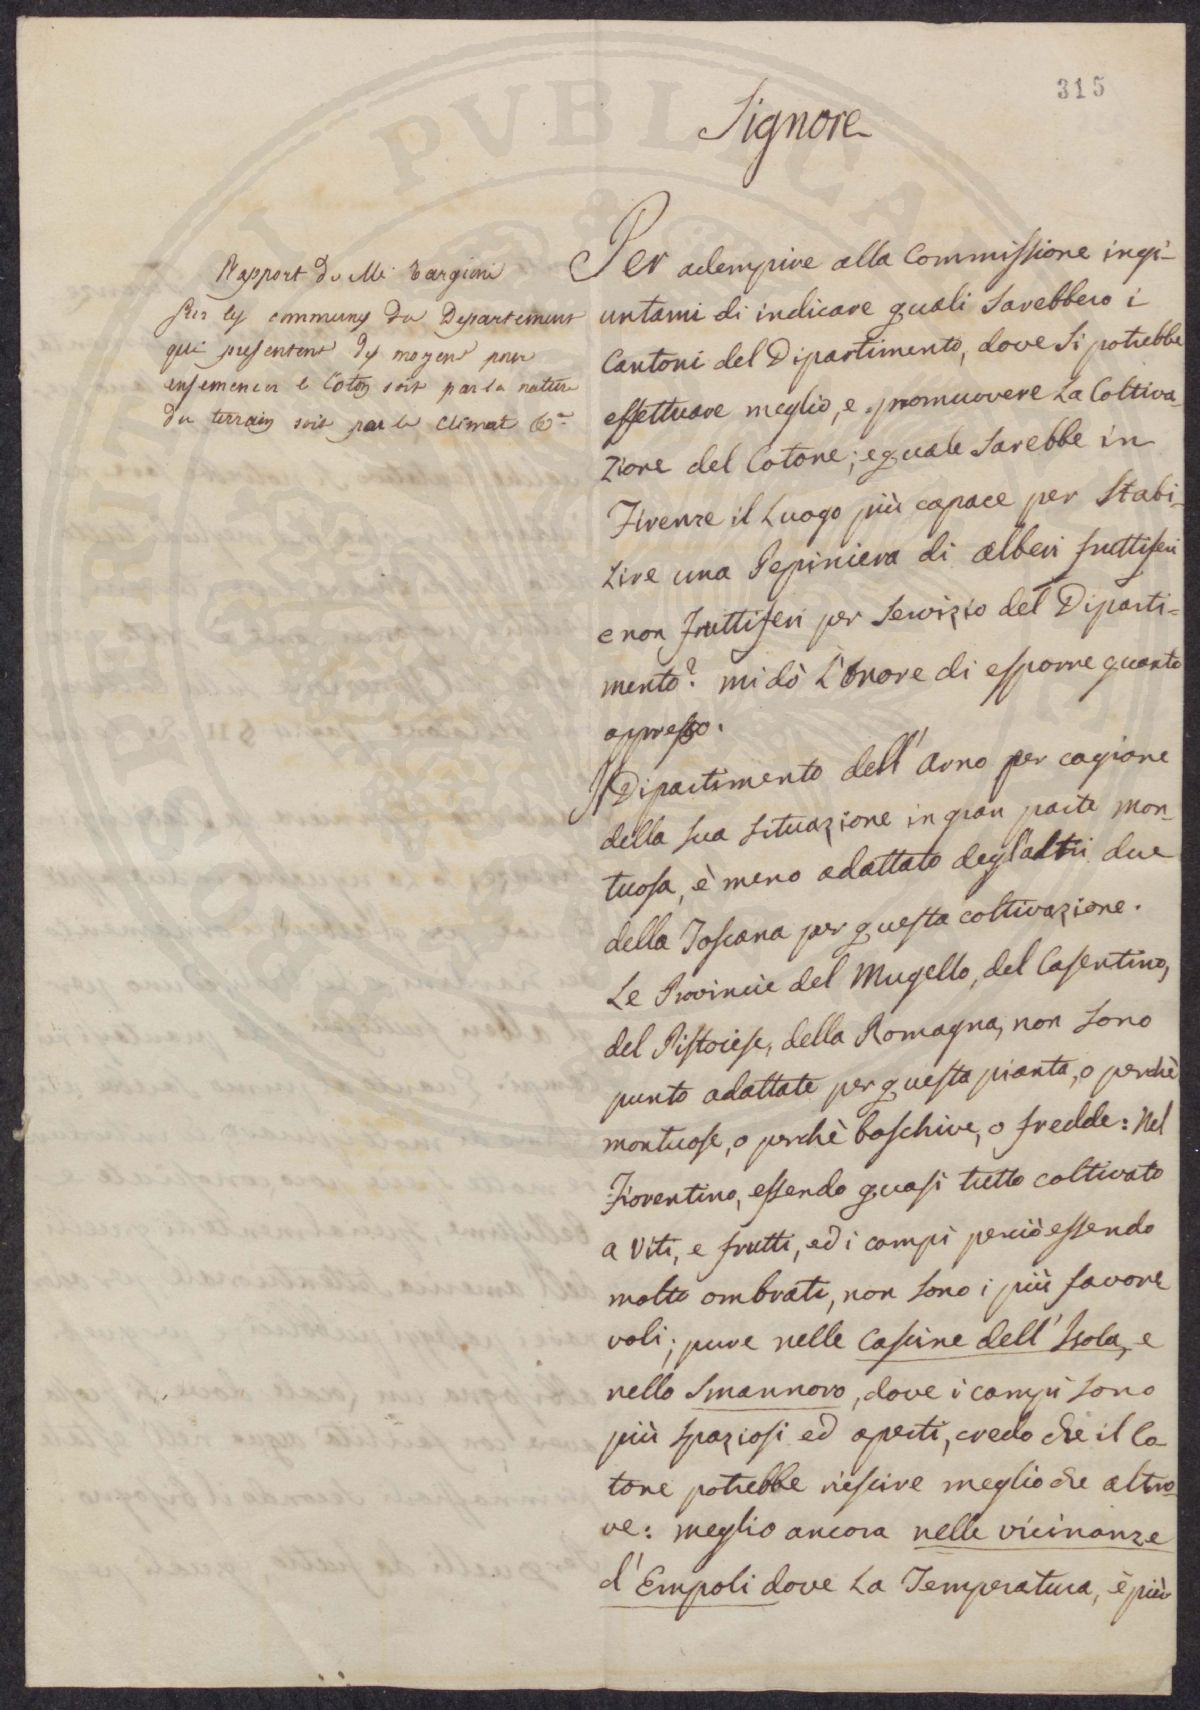 315
Signore
Rapport de Mr. Targioni
sur les communes du Departement
qui presentent des moyens pour
ensemencer le Coton soit par la nature
du terrain soit par le climat &a
Per adempire alla Commissione ingi-
untami di indicare quali sarebbero i
Cantoni del Dipartimento, dove si potrebbe
effettuare meglio, e promuovere La Coltiva-
zione del Cotone; e quale sarebbe in
Firenze il Luogo più capace per stabi-
Lire una Pepiniera di alberi fruttiferi
e non fruttiferi per servizio del Diparti-
mento? mi dò L'onore di esporre quanto
appresso.
Il Dipartimento dell'Arno per cagione
della sua situazione in gran parte mon-
tuosa, è meno adattato degl'altri due
della Toscana per questa coltivazione.
Le Provincie del Mugello, del Casentino,
del Pistoiese, della Romagna, non sono
punto adattate per questa pianta, o perchè
montuose, o perchè boschive, o fredde: Nel
Fiorentino, essendo quasi tutto coltivato
a Viti, e frutti, ed i campi perciò essendo
molto ombrati, non sono i più favore
voli; pure nelle Cascine dell'Isola, e
nello Smannoro, dove i campi sono
più spaziosi ed aperti, credo che il Co-
tone potrebbe riescire meglio che altro-
ve: meglio ancora nelle vicinanze
d'Empoli dove La Temperatura, è più
PVBLICA